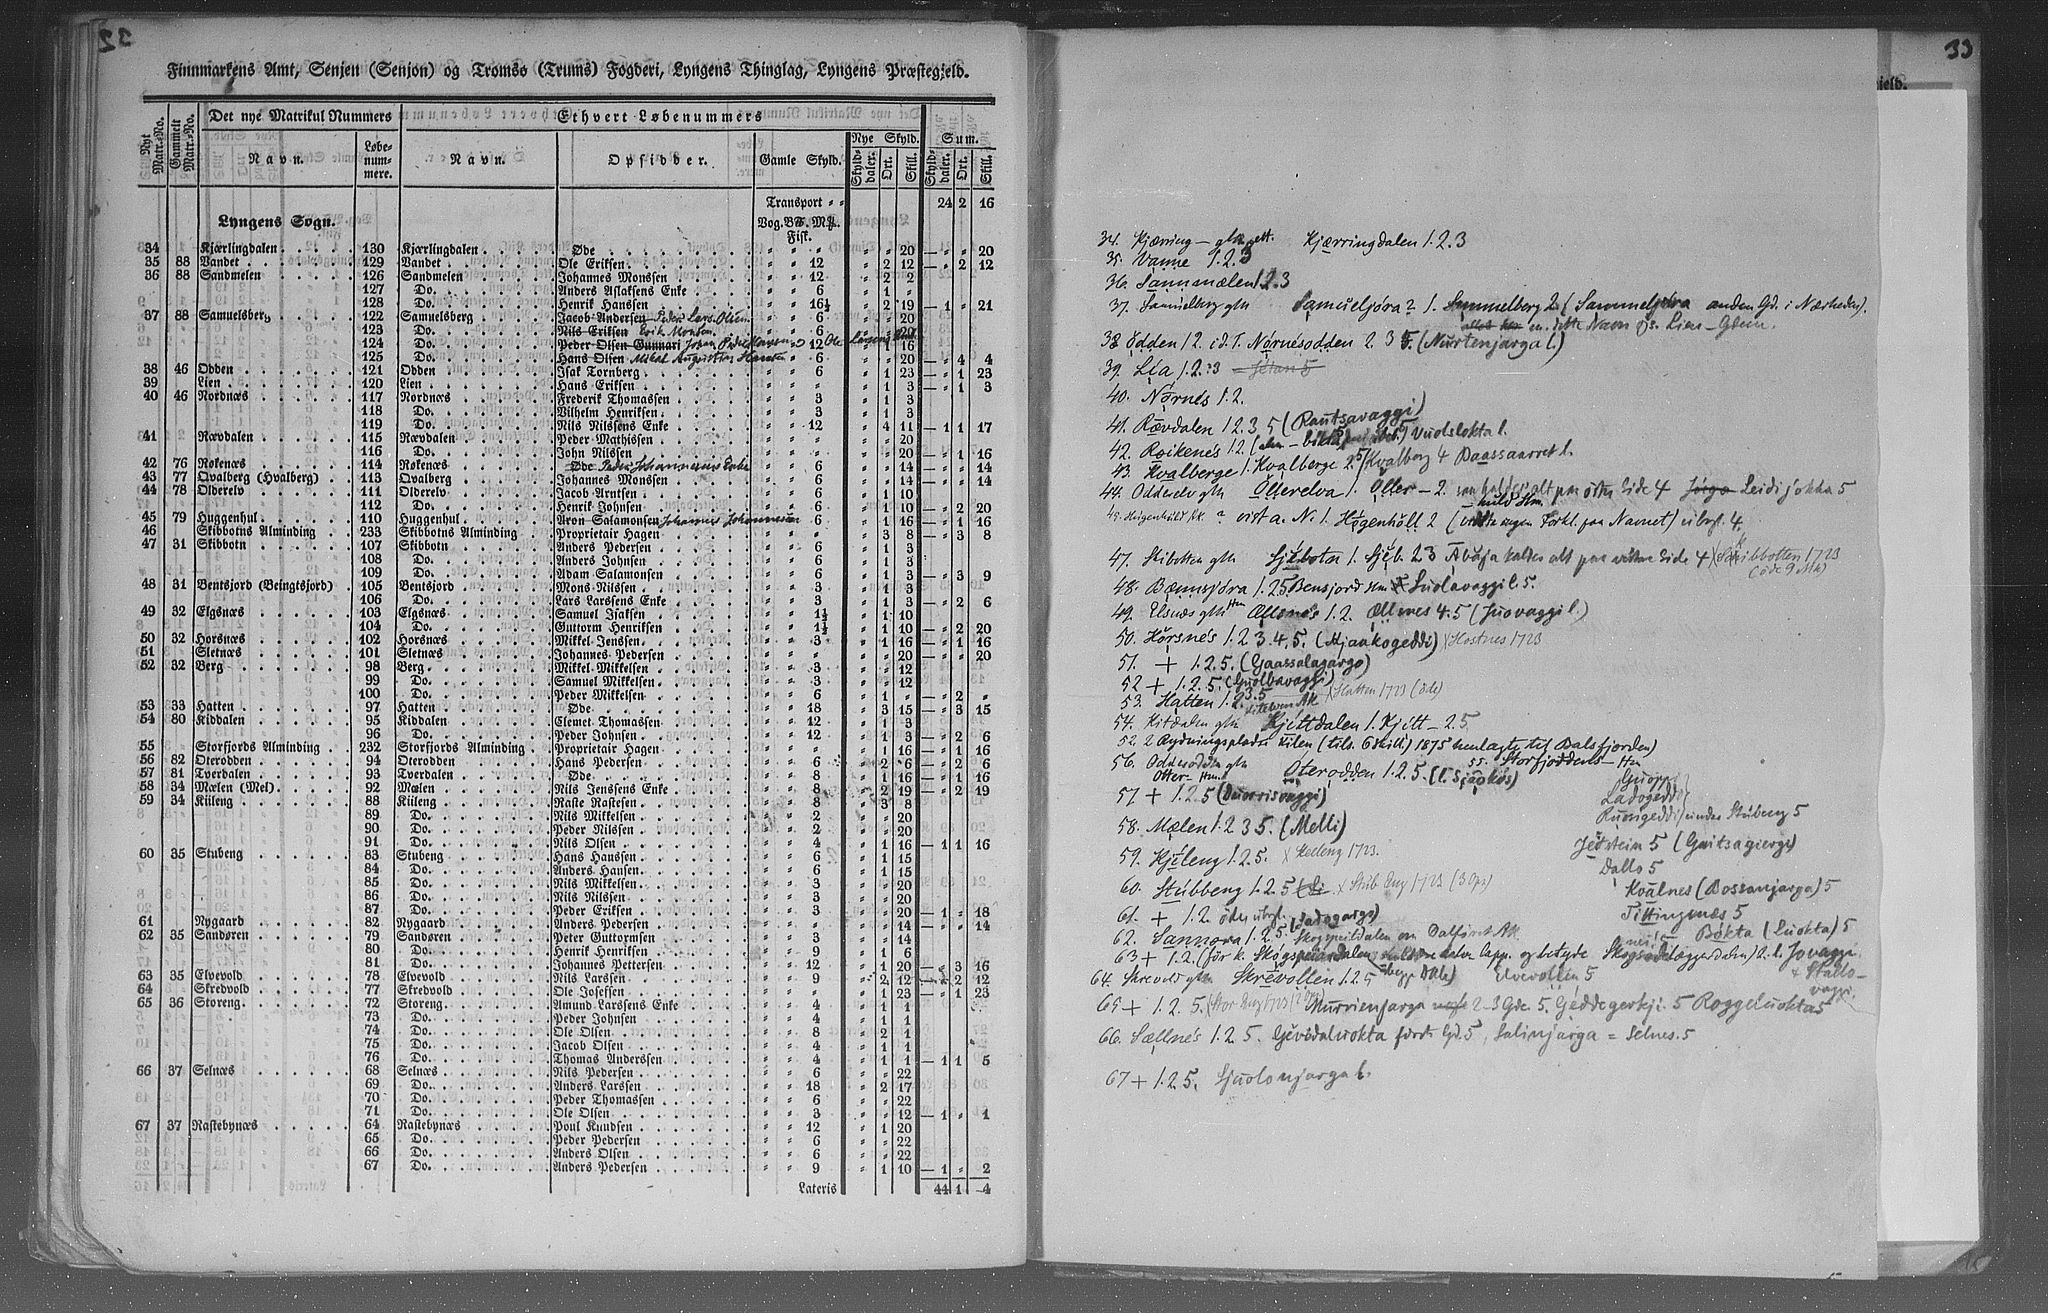 32
Finnmarkens Amt, Senjen (Senjon) og Tromsø (Trums) Fogderi, Lyngens Thinglag, Lyngens Præstegjeld.
Det nye Matrikul Nummers Ethvert Løbenummers
Nyt Matr.-No. Gammelt Matr.-No. Navn. Løbenummere. Navn. Opsidder. Gamle Skyld. Nye Skyld. Sum.
Skylddaler. Ort. Skill. Skylddaler. Ort. Skill.
Transport 24 2 16
Lyngens Sogn. Vog. Pd. Mk. Fisk.
34 Kjærlingdalen 130 Kjærlingdalen Øde " " " " " 20 — " " 20
35 88 Vandet 129 Vandet Ole Eriksen " " 12 " 2 12 — " 2 12
36 88 Sandmelen 126 Sandmelen Johannes Monssen " " 12 " 2 2
127 Do. Anders Aslaksens Enke " " 6 " 1 "
128 Do. Henrik Hanssen " " 16½ " 2 19 — 1 " 21
37 88 Samuelsberg 122 Samuelsberg Jacob Andersen Peder Lars Olsen " " 6 " " 20
123 Do. Nils Eriksen Erik Monsen " " 6 " " 20
124 Do. Peder Olsen Gunnari Johan Peder " 12 Ole " 16
125 Do. Hans Olsen Mikal Augustin Hansen " " 6 " " 20 — " 4 4
38 46 Odden 121 Odden Isak Tornberg " " 6 " 1 23 — " 1 23
39 Lien 120 Lien Hans Eriksen " " " " 1 3 — " 1 3
40 46 Nordnæs 117 Nordnæs Frederik Thomassen " " 3 " 1 3
118 Do. Vilhelm Henriksen " " 3 " 1 3
119 Do. Nils Nilssens Enke " " 12 " 4 11 — 1 1 17
41 Rævdalen 115 Rævdalen Peder Mathissen " " " " " 20
116 Do. John Nilssen " " " " " 20 — " 1 16
42 76 Røkenæs 114 Røkenæs Øde Peder Johannesens Enke " " 6 " " 14 — " " 14
43 77 Qvalberg (Hvalberg) 113 Qvalberg Johannes Monssen " " 6 " " 14 — " " 14
44 78 Olderelv 111 Olderelv Jacob Arntsen " " 6 " 1 10
112 Do. Henrik Johnsen " " 6 " 1 10 — " 2 20
45 79 Huggenhul 110 Huggenhul Aron Salamonsen Johannes Johannessen " " 6 " 1 16 — " 1 16
46 Skibbotns Alminding 233 Skibbotns Alminding Proprietair Hagen " " " " 3 8 — " 3 8
47 31 Skibbotn 107 Skibbotn Anders Pedersen " " 6 " 1 3
108 Do. Anders Johnsen " " 6 " 1 3
109 Do. Adam Salamonsen " " 6 " 1 3 — " 3 9
48 31 Bentsjord (Beingtsjord) 105 Bentsjord Mons Nilssen " " 3 " 1 3
106 Do. Lars Larssens Enke " " 3 " 1 3 — " 2 6
49 32 Elgsnæs 103 Elgsnæs Samuel Isaksen " " 1½ " 1 10
104 Do. Guttorm Henriksen " " 1½ " 1 10 — " 2 20
50 32 Horsnæs 102 Horsnæs Mikkel Jenssen " " 3 " 1 16 — " 1 16
51 Sletnæs 101 Sletnæs Johannes Pedersen " " " " " 20 — " " 20
52 32 Berg 98 Berg Mikkel Mikkelsen " " 3 " " 12
99 Do. Samuel Mikkelsen " " 3 " " 12
100 Do. Peder Mikkelsen " " 6 " 1 " — " 2 "
53 33 Hatten 97 Hatten Øde " " 18 " 3 15 — " 3 15
54 80 Kiddalen 95 Kiddalen Clemet Thomassen " " 12 " 1 3
96 Do. Peder Johnsen " " 12 " 1 3 — " 2 6
55 Storfjords Alminding 232 Storfjords Alminding Proprietair Hagen " " " " 1 16 — " 1 16
56 82 Oterodden 94 Oterodden Hans Pedersen " " 6 " 2 6 — " 2 6
57 81 Tverdalen 93 Tverdalen Øde " " 8 " 1 16 — " 1 16
58 34 Mælen (Mel) 92 Mælen Nils Jenssens Enke " " 8 " 2 19 — " 2 19
59 34 Kiileng 88 Kiileng Raste Rastesen " " 8 " 3 8
89 Do. Nils Mikkelsen " " 2 " " 20
90 Do. Peder Nilssen " " 2 " " 20
91 Do. Nils Olsen " " 4 " 1 16 — 1 1 16
60 35 Stubeng 83 Stubeng Hans Hanssen " " 6 " 1 15
84 Do. Anders Hansen " " 6 " 1 15
85 Do. Nils Mikkelsen " " 3 " " 20
86 Do. Nils Nilssen " " 3 " " 20
87 Do. Peder Eriksen " " 3 " " 20 — 1 " 18
61 Nygaard 82 Nygaard Anders Pedersen " " " " " 14 — " " 14
62 35 Sandøren 79 Sandøren Peter Guttormsen " " 3 " " 14
80 Do. Henrik Henriksen " " 9 " 1 6
81 Do. Johannes Pettersen " " 12 " 1 20 — " 3 16
63 35 Elvevold 78 Elvevold Nils Larssen " " 9 " 2 12 — " 2 12
64 Skredvold 77 Skredvold Ole Josefsen " " " " 1 23 — " 1 23
65 36 Storeng 72 Storeng Amund Larssens Enke " " 4 " 1 1
73 Do. Peder Johnsen " " 4 " 1 1
74 Do. Ole Olsen " " 8 " 2 1
75 Do. Jacob Olsen " " 4 " 1 1
76 Do. Thomas Anderssen " " 4 " 1 1 — 1 1 5
66 37 Selnæs 68 Selnæs Nils Pedersen " " 6 " " 22
69 Do. Anders Larssen " " 18 " 2 17
70 Do. Peder Thomassen " " 6 " " 22
71 Do. Ole Olsen " " 3 " " 12 — 1 " 1
67 37 Rastebynæs 64 Rastebynæs Poul Knudsen " " 12 " 1 20
65 Do. Peder Pedersen " " 6 " " 22
66 Do. Anders Olsen " " 6 " " 22
67 Do. Anders Pedersen " " 9 " 1 10 — 1 " 2
Lateris 44 1 4
33
jeld.
34. Kjærring – gln. Kjærringdalen 1.2.3
35. Vanne 1.2.3
36. Sannmælen 1.2.3
37. Samuelberg gln Samueljora? 1. Sammelberg 2 (Sammeljora anden Gd. i Nærheden).
en. dette Navn Lien – Glem.
38 Odden 12. i d. T. Nørnesodden 2.3 5. (Nurtenjarga l.)
39. Lia 1.2.3
40. Nørnes 1.2.
41. Rævdalen 1.2.3.5 (Rautsavaggi)
42. Røikenes 1.2. Vuolslokta l.
43. Kvalberge 1. Kvalberge 2.5 Kvalberg 4 Baassaarret l.
44. Odderelv gln Ålterelva 1. Oller – 2. kaldes alt paa østre Side 4 Leidijokka 5
45 Huggenhuld a. N. 1. Høgenholl 2 (vidste ingen Forkl. paa Navnet) 4.
47. Skibotten gln Sjibotn 1. Sjib. 2.3 kaldes alt paa vestre Side 4 Schibbotten 1723
(øde 9 )
48. Bænnsjora 1.25 Bensjord Luolavaggi l. 5.
49. Elsnæs gln Ællsnes 1.2. Ællnes 4.5 (Juovaggi l.)
50. Hørsnes 1.2.3.4.5. (Hjaakogeddi) Hostnes 1723
51. + 1.2.5. (Gaassalagargo)
52 + 1.2.5. (Guolbavaggi)
53. Hatten 1.2.3.5 Hatten 1723 (øde)
54. Kitdalen gln Kjittdalen 1. Kjitt – 2.5
52. 2 Rydningspladse Kilen (tils. 6 skill.) 1875 henlagte til Balsfjorden)
55. Storfjoddens –
56. Odderodden gln Oterodden 1.2.5.
Otter –
57 + 1.2.5 (Duorrisvaggi) Ladogeddi
58. Mælen 1.2.3 5. (Melli) Ruosgeddi under Stubeng 5
59. Kjileng 1.2.5. Keeleng 1723. Jedstein 5 (Gaitsagierge)
Dallo 5
60. Stubbeng 1.2.5 Stub Eng 1723 (3 Ops) Kvalnes (Bossanjarga) 5
61. + 1.2. Tittingnæs 5
62. Sannøra 1.2.5. Skogspeildalen Bokta (Luokta) 5
63 + 1.2. (før k. Skogs Lapp. og betyde Jovaggi.
64. Skrevold gln Skrevollen 1.2.5 Elvevollen 5 + Stallovaggi.
65 + 1.2.5. (Stor Eng 1723 Murrienjarga 2–3 Gde. 5. Geddegertji. 5 Roggeluokta 5
66. Sællnes 1.2.5. Gievdaluokta Gd. 5, Salinjarga = Selnes. 5
67 + 1.2.5. Sjuolonjarga l.